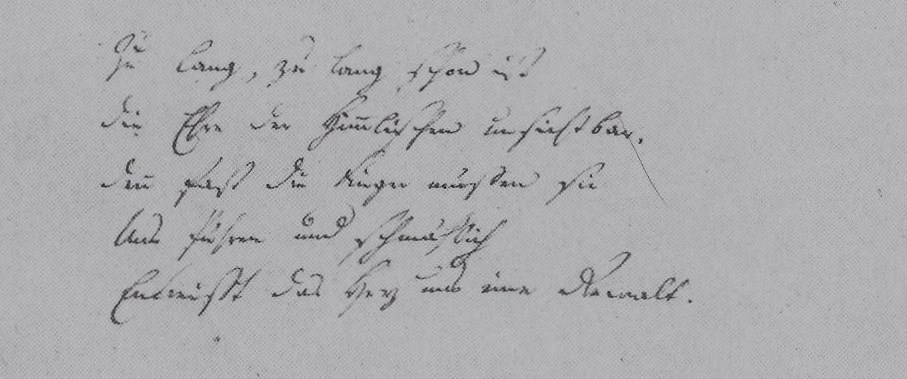 Zu lang, zu lang schon ist
die Ehre der Himmlischen unsichtbar.
denn fast die Finger müssen sie
Uns führen und schmählich
Entreißt das Herz uns eine Gewalt.